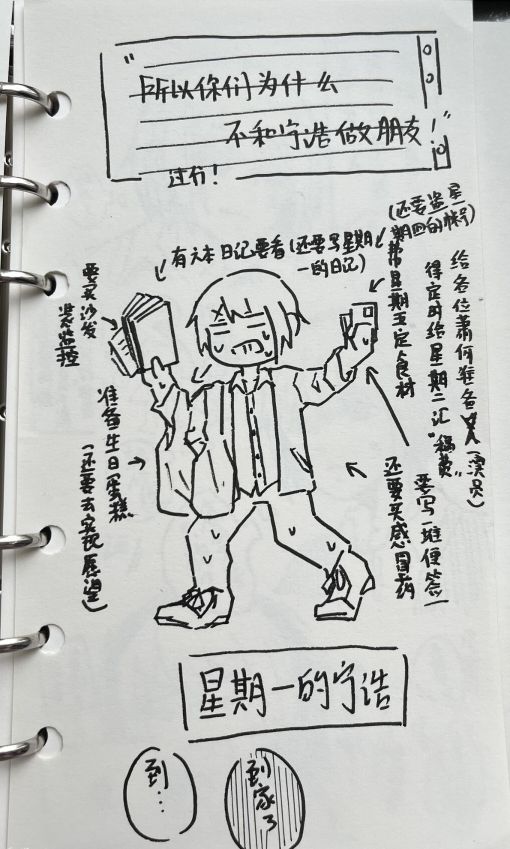 "所以你们为什么
不和宁浩做朋友!"
过分!
有六本日记要看(还要写星期
一的日记)
(还要盗星
期四的帐号)
要买沙发
装监控
准备生日蛋糕
(还要去实现愿望)
帮星期五定食材
得定时给星期二汇"稿费"
给各位萧何准备
(演员)
要写一堆便签
还要买感冒药
星期一的宁浩
到…
到家了